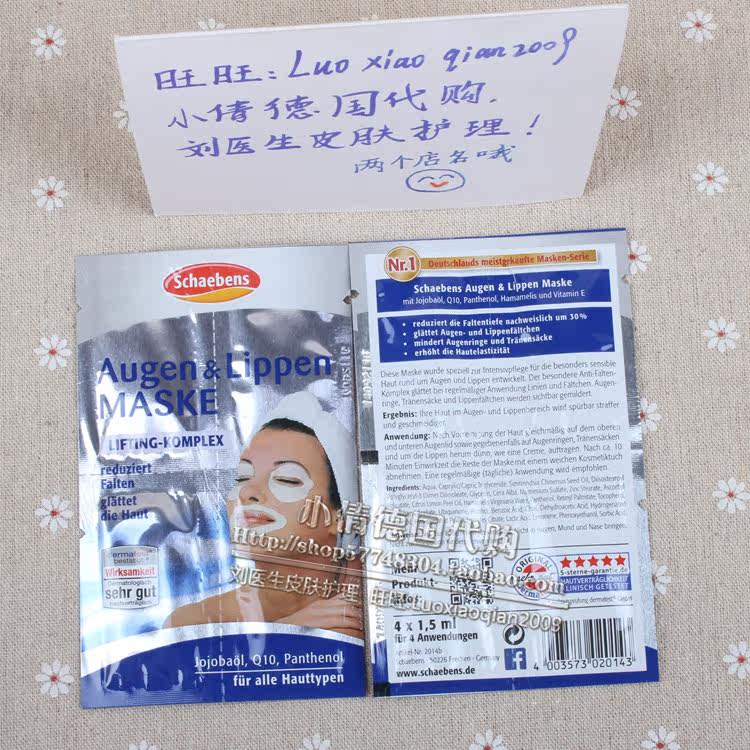 旺旺：Luo xiao qian2009
小倩德国代购，
刘医生皮肤护理！
两个店名哦
Schaebens
Augen & Lippen
MASKE
LIFTING-KOMPLEX
reduziert
Falten
glättet
die Haut
dermatest
bestätigt
Wirksamkeit
Dermatologisch
sehr gut
nachverträglich
Jojobaöl, Q10, Panthenol
für alle Hauttypen
Nr.1 Deutschlands meistgekaufte Masken-Serie
Schaebens Augen & Lippen Maske
mit Jojobaöl, Q10, Panthenol, Hamamelis und Vitamin E
• reduziert die Faltentiefe nachweislich um 30%
• glättet Augen- und Lippenfältchen
• mindert Augenringe und Tränensäcke
• erhöht die Hautelastizität
Diese Maske wurde speziell zur Intensivpflege für die besonders sensible
Haut rund um Augen und Lippen entwickelt. Der besondere Anti-Falten-
Komplex glättet bei regelmäßiger Anwendung Linien und Fältchen. Augen-
ringe, Tränensäcke und Lippenfältchen werden sichtbar gemildert.
Ergebnis: Ihre Haut im Augen- und Lippenbereich wird spürbar straffer
und geschmeidiger.
Anwendung: Nach Vorreinigung der Haut gleichmäßig auf dem oberen
und unteren Augenlid sowie gegebenenfalls auf Augenringen, Tränensäcken
und um die Lippen herum dünn, wie eine Creme, auftragen. Nach ca. 10
Minuten Einwirkzeit die Reste der Maske mit einem weichen Kosmetiktuch
abnehmen. Eine regelmäßige (tägliche) Anwendung wird empfohlen.
Mund und Nase bringen.
小倩德国代购
刘医生皮肤护理 旺旺:luoxiaoqian2009
Mehr
Produkt-
Infos
ORIGINAL
5-sterne-garantie.de
HAUTVERTRÄGLICHKEIT
KLINISCH GETESTET
4 x 1,5 ml
für 4 Anwendungen
Artikel-Nr. 2014b
Schaebens 50226 Frechen - Germany
www.schaebens.de
4 003573 020143